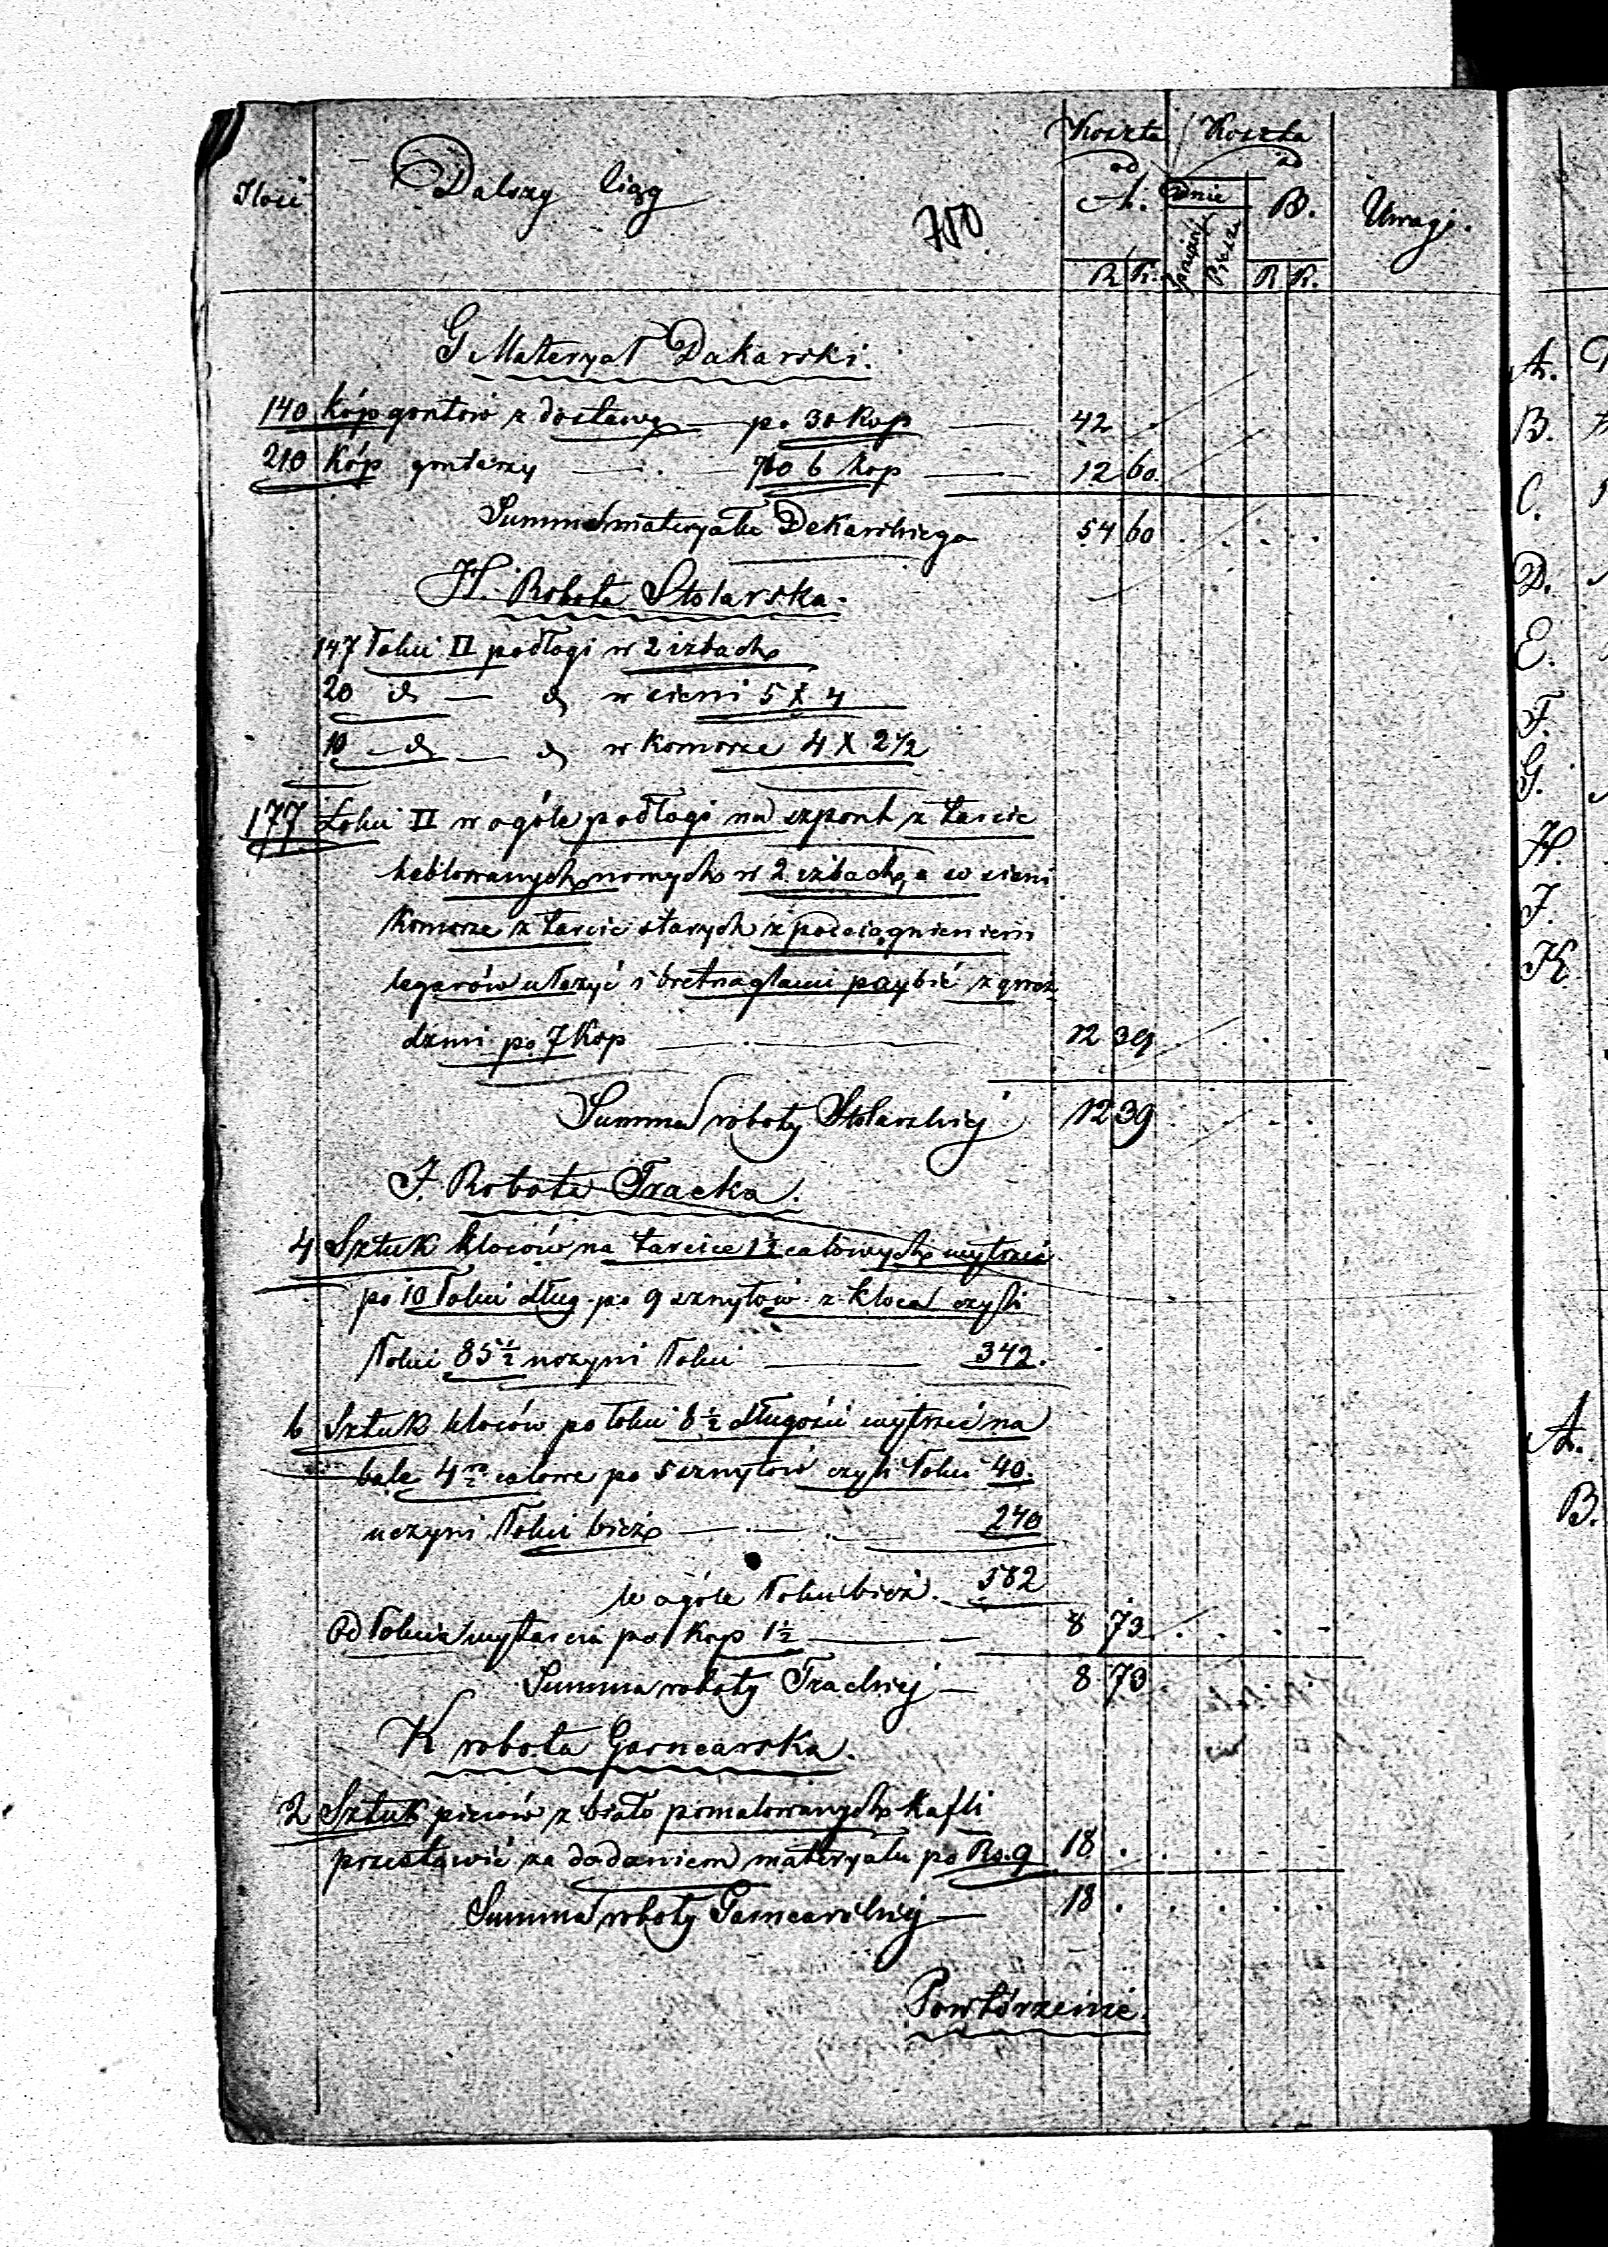 Ilość Dalszy ciąg 750 Koszta od A. Dnie Koszta od B. Uwagi.
R K. Piesze R K.
G Materyał Dakarski.
140 kóp gontów z dostawą po 30 kop 42 .
210 Kóp gontaży po 6 kop 12 60
Summa materyału Dekarskiego 54 60 . . . .
H. Robota Stolarska.
147 łokci □ podłogi w 2 izbach
20 d — d w sieni 5 X 4
10 — d — d w komorze 4 X 2 1/2
177 Łokci □ w ogóle podłogi na szpont z tarcic
heblowanych nowych w 2 izbach, a w sieni
komorze z tarcic starych z podciągnieniem
legarów ułożyć i bretnaglami przybić z gwoź
dzmi po 7 Kop 12 39 . . . .
Summa roboty Stolarskiej 12 39 . . . .
I. Robota Tracka.
4 Sztuk kloców na tarcice 1 1/2 calowych wytrzeć
po 10 łokci dług. po 9 sznytów z kloca czyli
łokci 85 1/2 uczyni łokci 342.
6 Sztuk kloców po łokci 8 1/2 długości wytrzeć na
bale 4 calowe po 5 sznytów czyli łokci 40.
uczyni łokci bież 240
w ogóle łokci bież. 582
Od łokcia wytarcia po Kop 1 1/2 8 73 . . . .
Summa roboty Trackiej — 8 73 . . . .
K robota Garncarska.
2 Sztuk pieców z biało pomalowanych kafli
przestawić za dodaniem materyału po Rs. 9 18 . . . . .
Summa roboty Garncarskiej — 18 . . . . .
Powtórzenie.
A.
B.
C.
D.
E.
F.
G.
H.
I.
K.
A.
B.